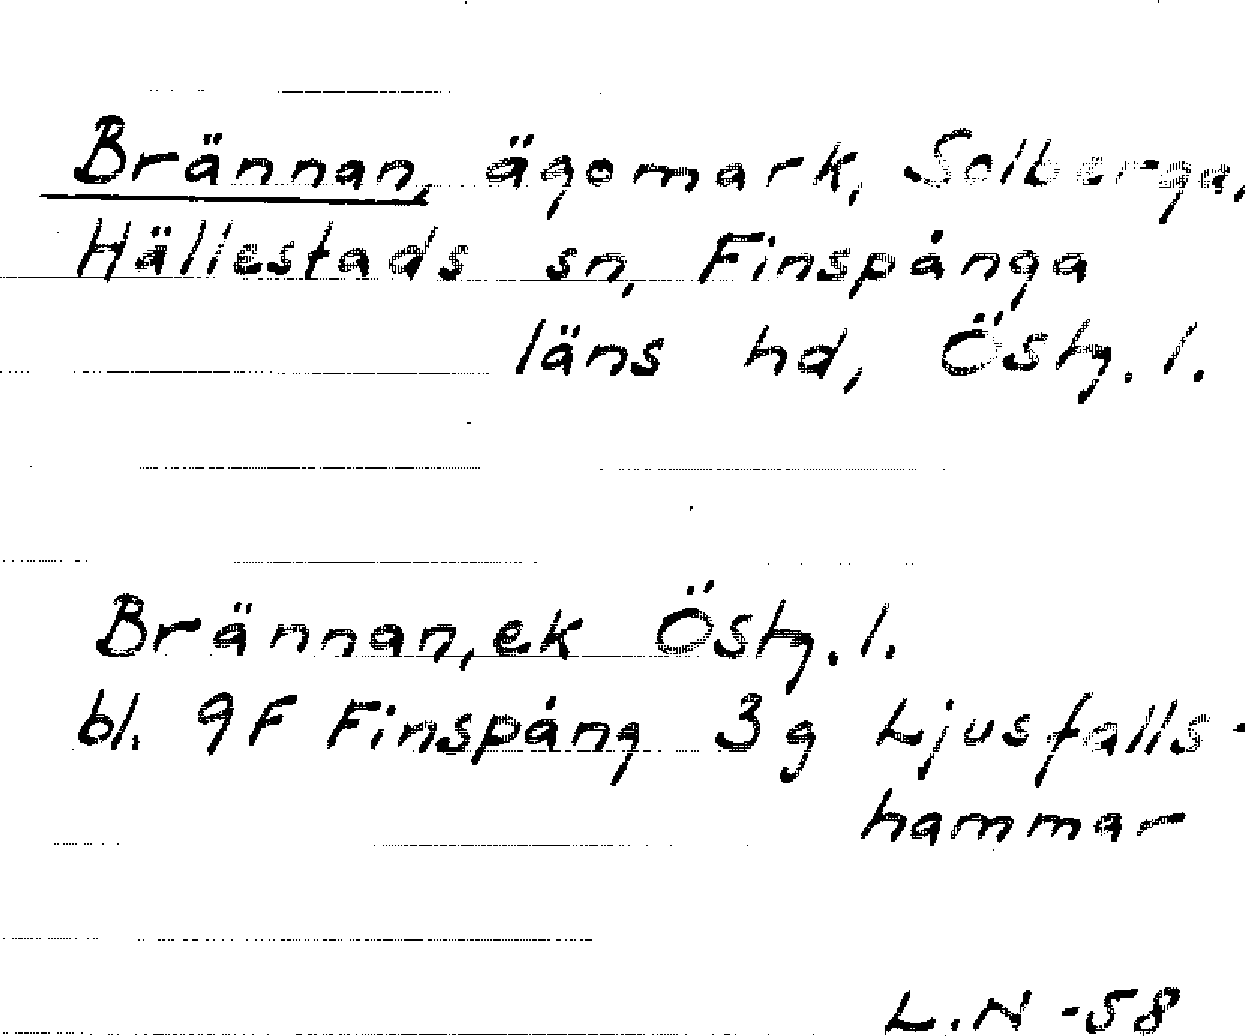 Brännan, ägomark, Solberga,
Hällestads sn, Finspånga
läns hd, Östg. l.
Brännan, ek Östg. l.
bl. 9F Finspång 3g Ljusfalls-
hammar
L.N -58